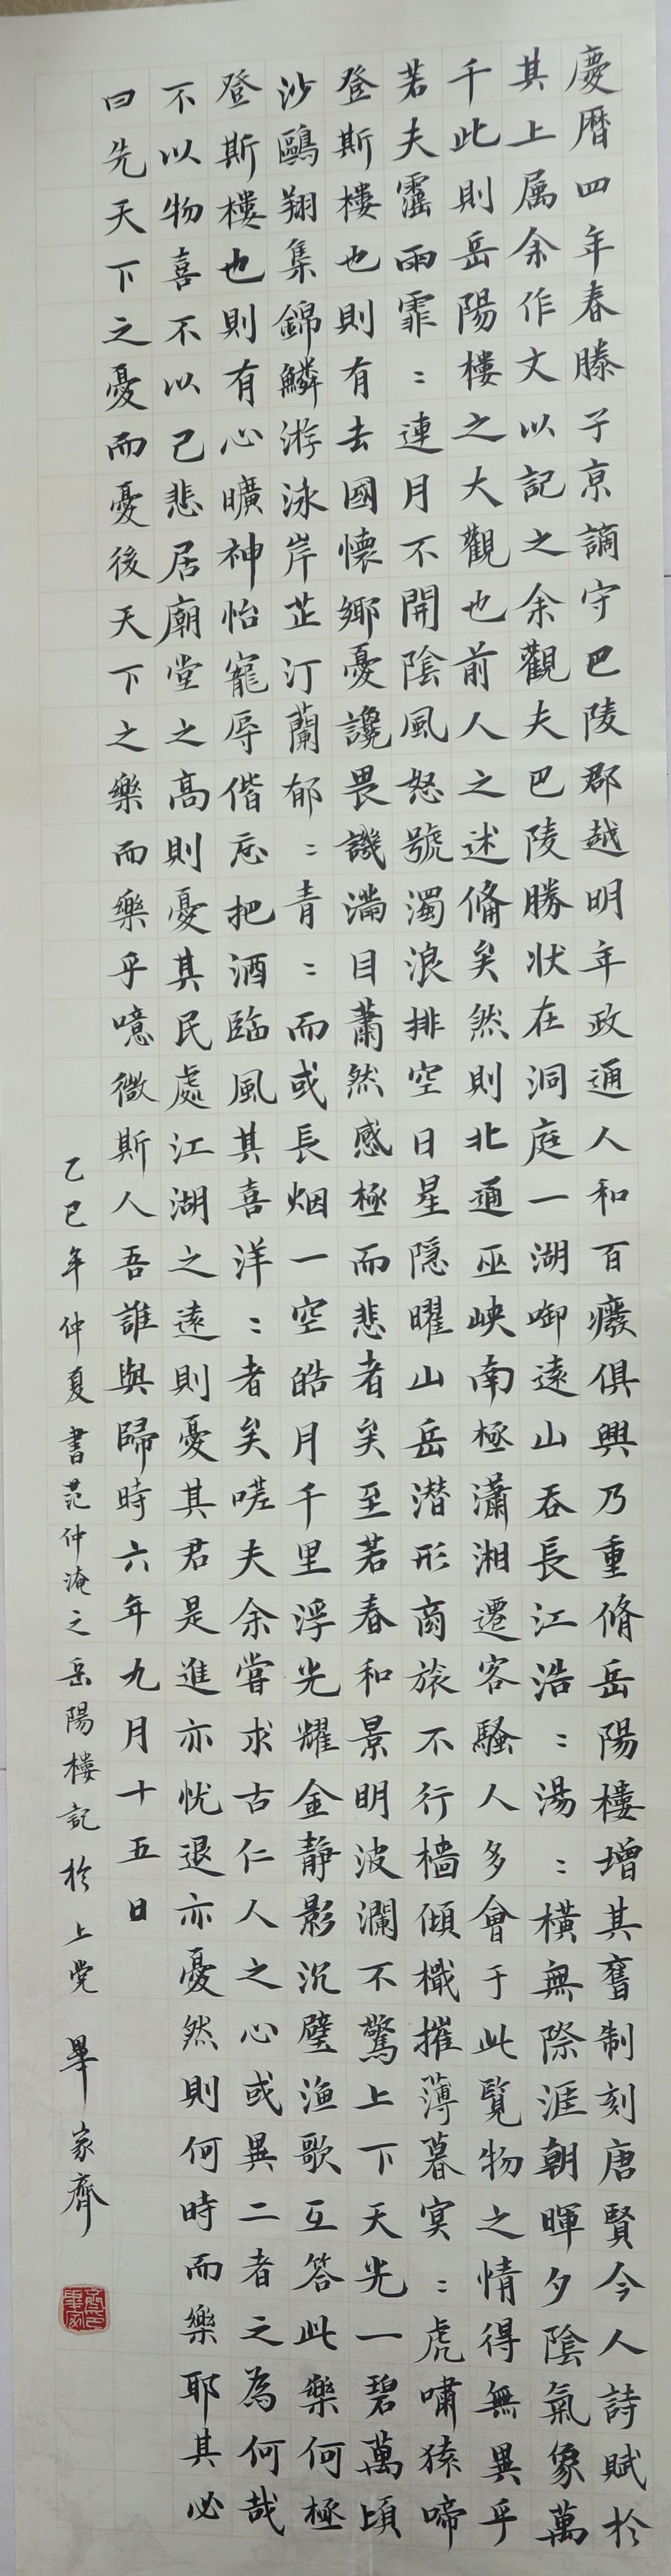 慶曆四年春滕子京謫守巴陵郡越明年政通人和百癈俱興乃重脩岳陽樓增其舊制刻唐賢今人詩賦於
其上属余作文以記之余觀夫巴陵勝狀在洞庭一湖啣遠山吞長江浩：湯：橫無際涯朝暉夕陰氣象萬
千此則岳陽樓之大觀也前人之述俻矣然則北通巫峽南極瀟湘遷客騷人多會于此覽物之情得無異乎
若夫霪雨霏：連月不開陰風怒號濁浪排空日星隱曜山岳潛形商旅不行檣傾檝摧薄暮冥：虎嘯猿啼
登斯樓也則有去國懷鄉憂讒畏譏滿目蕭然感極而悲者矣至若春和景明波瀾不驚上下天光一碧萬頃
沙鷗翔集錦鱗游泳岸芷汀蘭郁：青：而或長烟一空皓月千里浮光耀金静影沉璧漁歌互答此樂何極
登斯樓也則有心曠神怡寵辱偕忘把酒臨風其喜洋：者矣嗟夫余嘗求古仁人之心或異二者之為何哉
不以物喜不以己悲居廟堂之高則憂其民處江湖之遠則憂其君是進亦忧退亦憂然則何時而樂耶其必
曰先天下之憂而憂後天下之樂而樂乎噫微斯人吾誰與歸時六年九月十五日
乙巳年仲夏書范仲淹之岳陽樓記於上党 畢家齊